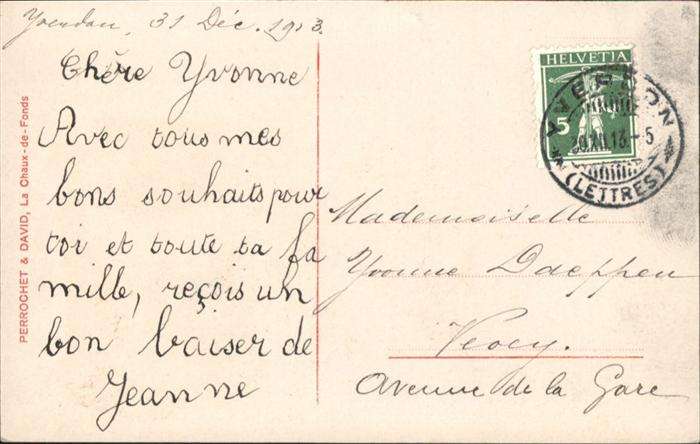 Yverdon, 31 Déc. 1913.
Chère Yvonne
Avec tous mes
bons souhaits pour
toi et toute ta fa
mille, reçois un
bon baiser de
Jeanne
PERROCHET & DAVID, La Chaux-de-Fonds
HELVETIA
5
YVERDON
30.XII.13.-5
(LETTRES)
Mademoiselle
Yvonne Daeppen
Vevey.
Avenue de la Gare